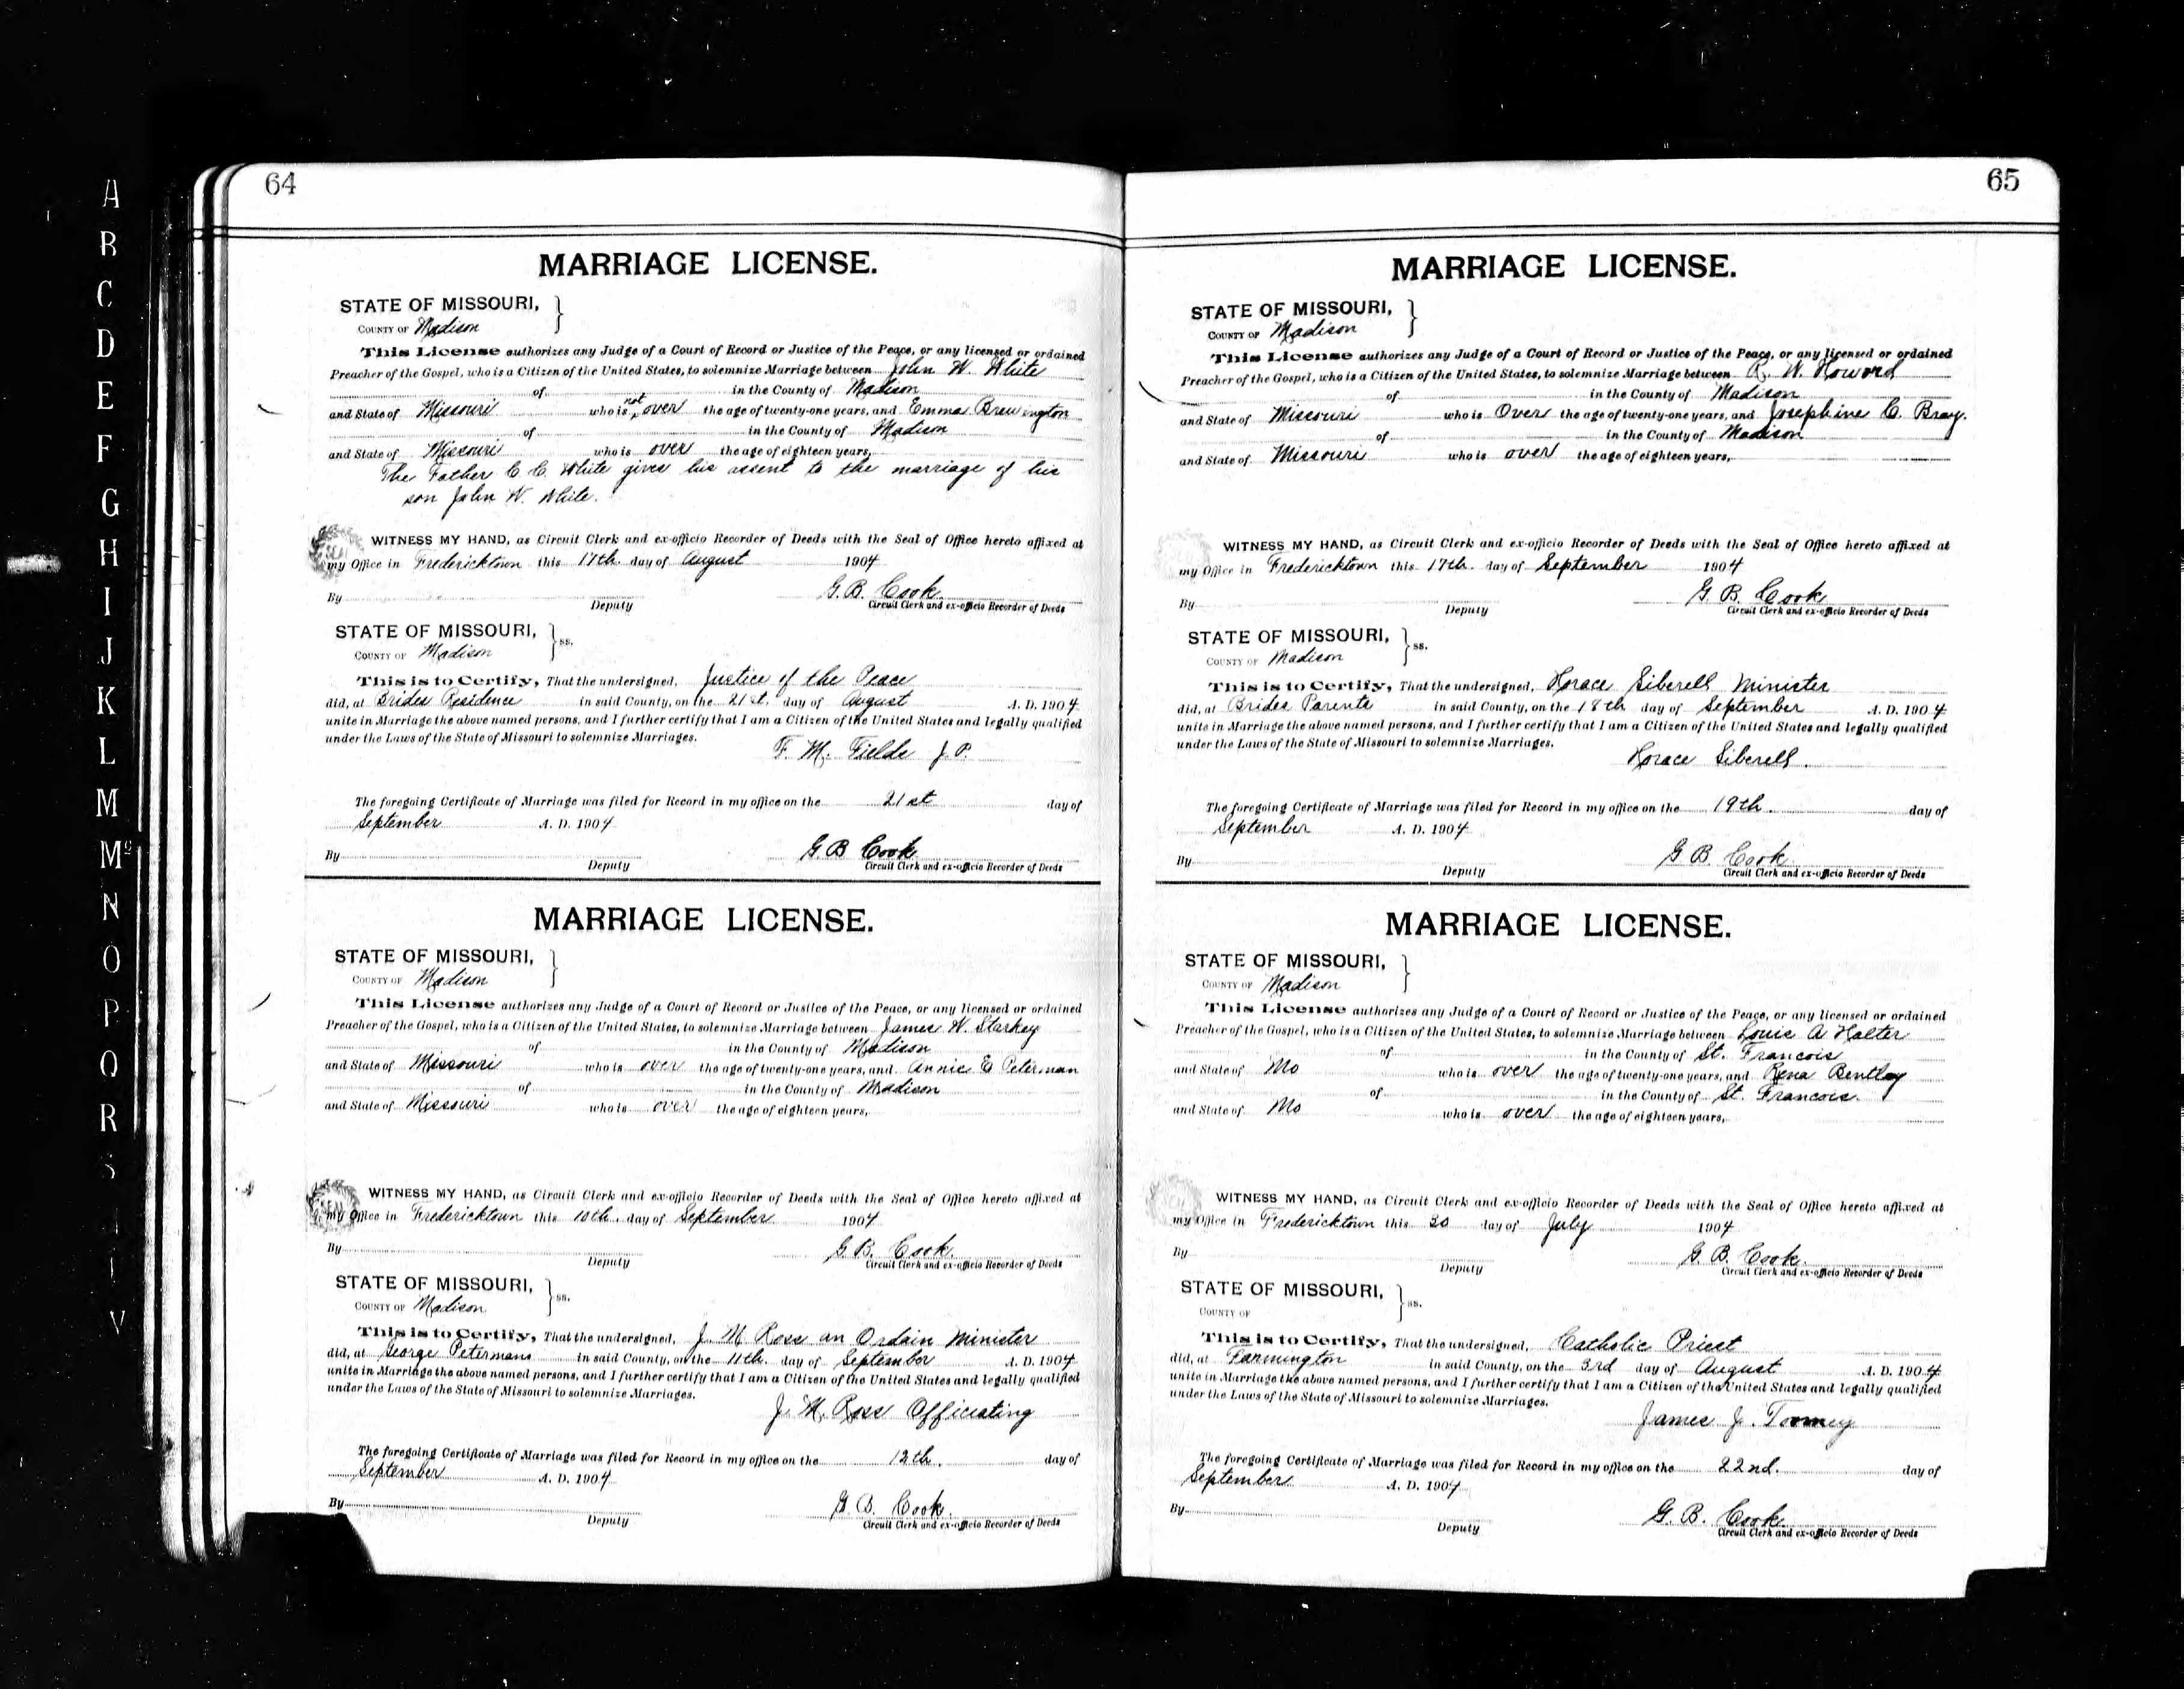 A
B
C
D
E
F
G
H
I
J
K
L
M
Mc
N
O
P
Q
R
S
V
64
MARRIAGE LICENSE.
STATE OF MISSOURI,
COUNTY OF Madison
This License authorizes any Judge of a Court of Record or Justice of the Peace, or any licensed or ordained
Preacher of the Gospel, who is a Citizen of the United States, to solemnize Marriage between John W. White
of in the County of Madison
and State of Missouri who is not over the age of twenty-one years, and Emma Brewington
of in the County of Madison
and State of Missouri who is over the age of eighteen years,
The Father C. C. White gives his assent to the marriage of his
son John W. White.
SEAL WITNESS MY HAND, as Circuit Clerk and ex-officio Recorder of Deeds with the Seal of Office hereto affixed at
my Office in Fredericktown this 17th. day of August 1904
By Deputy G. B. Cook.
Circuit Clerk and ex-officio Recorder of Deeds
STATE OF MISSOURI, ss.
COUNTY OF Madison
This is to Certify, That the undersigned, Justice of the Peace
did, at Brides Residence in said County, on the 21st. day of August A. D. 1904
unite in Marriage the above named persons, and I further certify that I am a Citizen of the United States and legally qualified
under the Laws of the State of Missouri to solemnize Marriages.
F. M. Fields J. P.
The foregoing Certificate of Marriage was filed for Record in my office on the 21st day of
September A. D. 1904
By Deputy G. B. Cook
Circuit Clerk and ex-officio Recorder of Deeds
MARRIAGE LICENSE.
STATE OF MISSOURI,
COUNTY OF Madison
This License authorizes any Judge of a Court of Record or Justice of the Peace, or any licensed or ordained
Preacher of the Gospel, who is a Citizen of the United States, to solemnize Marriage between James W. Starkey
of in the County of Madison
and State of Missouri who is over the age of twenty-one years, and Annie E Peterman
of in the County of Madison
and State of Missouri who is over the age of eighteen years,
SEAL WITNESS MY HAND, as Circuit Clerk and ex-officio Recorder of Deeds with the Seal of Office hereto affixed at
my Office in Fredericktown this 10th. day of September 1904
By Deputy G. B. Cook.
Circuit Clerk and ex-officio Recorder of Deeds
STATE OF MISSOURI, ss.
COUNTY OF Madison
This is to Certify, That the undersigned, J. M. Ross an Ordain Minister
did, at George Petermans in said County, on the 11th. day of September A. D. 1904
unite in Marriage the above named persons, and I further certify that I am a Citizen of the United States and legally qualified
under the Laws of the State of Missouri to solemnize Marriages.
J. M. Ross Officiating
The foregoing Certificate of Marriage was filed for Record in my office on the 12th. day of
September A. D. 1904
By Deputy G. B. Cook.
Circuit Clerk and ex-officio Recorder of Deeds
65
MARRIAGE LICENSE.
STATE OF MISSOURI,
COUNTY OF Madison
This License authorizes any Judge of a Court of Record or Justice of the Peace, or any licensed or ordained
Preacher of the Gospel, who is a Citizen of the United States, to solemnize Marriage between R. W. Howard
of in the County of Madison
and State of Missouri who is Over the age of twenty-one years, and Josephine C. Bray.
of in the County of Madison
and State of Missouri who is over the age of eighteen years,
WITNESS MY HAND, as Circuit Clerk and ex-officio Recorder of Deeds with the Seal of Office hereto affixed at
my Office in Fredericktown this 17th. day of September 1904
By Deputy G. B. Cook
Circuit Clerk and ex-officio Recorder of Deeds
STATE OF MISSOURI, ss.
COUNTY OF Madison
This is to Certify, That the undersigned, Horace Siberell Minister
did, at Brides Parents in said County, on the 18th day of September A. D. 1904
unite in Marriage the above named persons, and I further certify that I am a Citizen of the United States and legally qualified
under the Laws of the State of Missouri to solemnize Marriages.
Horace Siberell.
The foregoing Certificate of Marriage was filed for Record in my office on the 19th. day of
September A. D. 1904
By Deputy G. B. Cook
Circuit Clerk and ex-officio Recorder of Deeds
MARRIAGE LICENSE.
STATE OF MISSOURI,
COUNTY OF Madison
This License authorizes any Judge of a Court of Record or Justice of the Peace, or any licensed or ordained
Preacher of the Gospel, who is a Citizen of the United States, to solemnize Marriage between Louis A Halter
of in the County of St. Francois
and State of Mo who is over the age of twenty-one years, and Rena Bentley
of in the County of St. Francois.
and State of Mo who is over the age of eighteen years,
WITNESS MY HAND, as Circuit Clerk and ex-officio Recorder of Deeds with the Seal of Office hereto affixed at
my Office in Fredericktown this 30 day of July 1904
By Deputy G. B. Cook.
Circuit Clerk and ex-officio Recorder of Deeds
STATE OF MISSOURI, ss.
COUNTY OF
This is to Certify, That the undersigned, Catholic Priest
did, at Farmington in said County, on the 3rd day of August A. D. 1904
unite in Marriage the above named persons, and I further certify that I am a Citizen of the United States and legally qualified
under the Laws of the State of Missouri to solemnize Marriages.
James J. Toomey
The foregoing Certificate of Marriage was filed for Record in my office on the 22nd. day of
September A. D. 1904
By Deputy G. B. Cook.
Circuit Clerk and ex-officio Recorder of Deeds